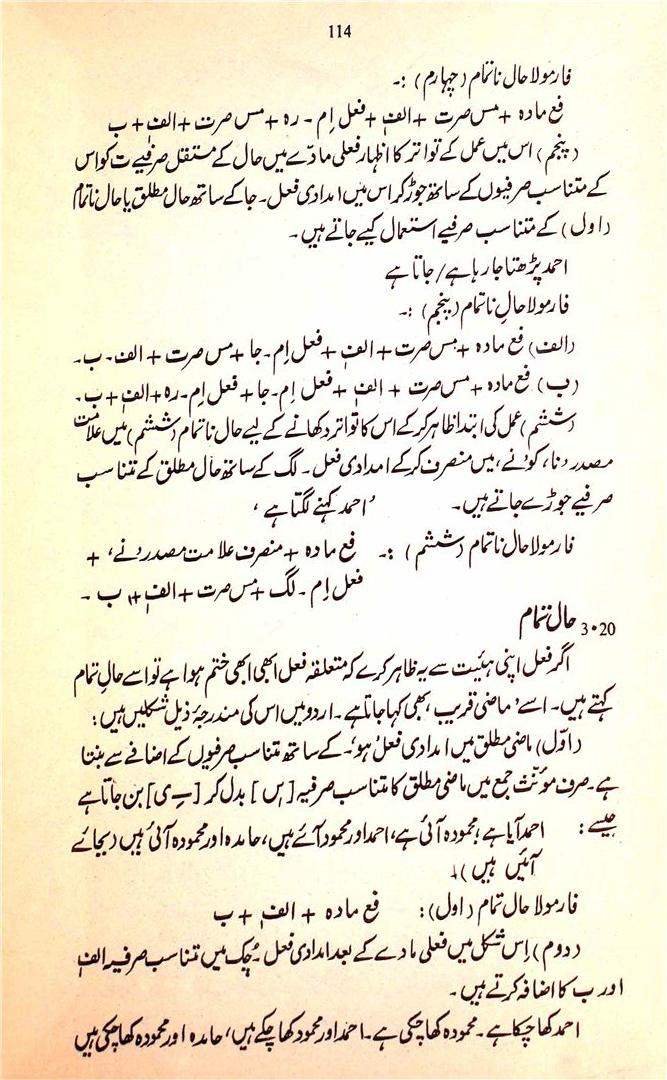 114
فارمولا حال ناتمام (چہارم) :۔
فع مادہ + مس صرت + الف + فعل اِم ۔ رہ + مس صرت + الف + ب
(پنجم) اس میں عمل کے تواتر کا اظہار فعلی مادّے میں حال کے مستقل صرفیے ت کو اس
کے متناسب صرفیوں کے ساتھ جوڑ کر اس میں امدادی فعل ۔ جا کے ساتھ حال مطلق یا حال ناتمام
(اول) کے متناسب صرفیے استعمال کیے جاتے ہیں ۔
احمد پڑھتا جا رہا ہے / جاتا ہے
فارمولا حالِ ناتمام (پنجم) :۔
(الف) فع مادہ + مس صرت + الف + فعل اِم ۔ جا + مس صرت + الف ۔ ب ۔
(ب) فع مادہ + مس صرت + الف + فعل اِم ۔ جا + فعل اِم ۔ رہ + الف + ب ۔
(ششم) عمل کی ابتدا ظاہر کر کے اس کا تواتر دکھانے کے لیے حال ناتمام (ششم) میں علامت
مصدر 'نا' کو 'نے' میں منصرف کر کے امدادی فعل ۔ لگ کے ساتھ حال مطلق کے متناسب
صرفیے جوڑے جاتے ہیں ۔ 'احمد کہنے لگتا ہے'
فارمولا حال ناتمام (ششم) :۔ فع مادہ + منصرف علامت مصدر 'نے' +
فعل اِم ۔ لگ + مس صرت + الف + ب ۔
3.20 حال تمام
اگر فعل اپنی ہیئت سے یہ ظاہر کرے کہ متعلقہ فعل ابھی ابھی ختم ہوا ہے تو اسے حالِ تمام
کہتے ہیں ۔ اسے 'ماضی قریب' بھی کہا جاتا ہے ۔ اردو میں اس کی مندرجۂ ذیل شکلیں ہیں :
(اوّل) ماضی مطلق میں امدادی فعل 'ہو' ۔ کے ساتھ متناسب صرفیوں کے اضافے سے بنتا
ہے ۔ صرف مؤنث جمع میں ماضی مطلق کا متناسب صرفیہ [ ] بدل کر [ ِی ] بن جاتا ہے
جیسے : احمد آیا ہے ؛ محمودہ آئی ہے ، احمد اور محمود آئے ہیں ، حامدہ اور محمودہ آئی ہیں (بجائے
آئیں ہیں) ۔
فارمولا حال تمام (اول) : فع مادہ + الف + ب
(دوم) اِس شکل میں فعلی مادے کے بعد امدادی فعل ۔ چُک میں متناسب صرفیہ الف
اور ب کا اضافہ کرتے ہیں ۔
احمد کھا چکا ہے ۔ محمودہ کھا چکی ہے ۔ احمد اور محمود کھا چکے ہیں ، حامدہ اور محمودہ کھا چکی ہیں